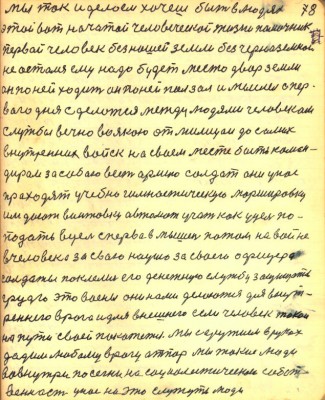 мы так и делаем хочеш быть в людях 78
этой вот начатой человеческой жизни помочник
первой человек без нашей земли без чернозёмной
не остался ему надо будет место двор земли
он по ней ходит он по ней ползал и мыслил с пер
ваго дня сделотся между людями человекам
службы вечно воякою от милиции до самих
внутренних войск на своем месте быть коман
диром за собою вест армию солдат они у нас
проходят учебно гимностическую марширов
им дают винтовку автомат учат как цел по
подать в цел сперва в мышен потом на войне
в человека за свою науку за своего офицера
солдаты поклели его денежную службу защищать
грудю это воены они нами делаются для внут
реннего врага и для внешнего если человек такой
на пути своей покотетси мы с оружием в руках
дадим любому врагу отпор мы такие люди
во внутри посегни на социалистическую собст
венност у нас на это служуть люди